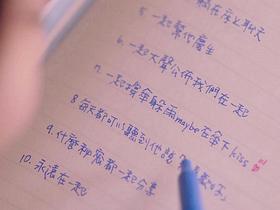 5. 一起幫忙慶生
6. 一起大聲公佈我們在一起
7. 一起撐傘躲雨maybe在傘下kiss
8. 每天都可以聽到他說
9. 什麼秘密都一起分享
10. 永遠在一起